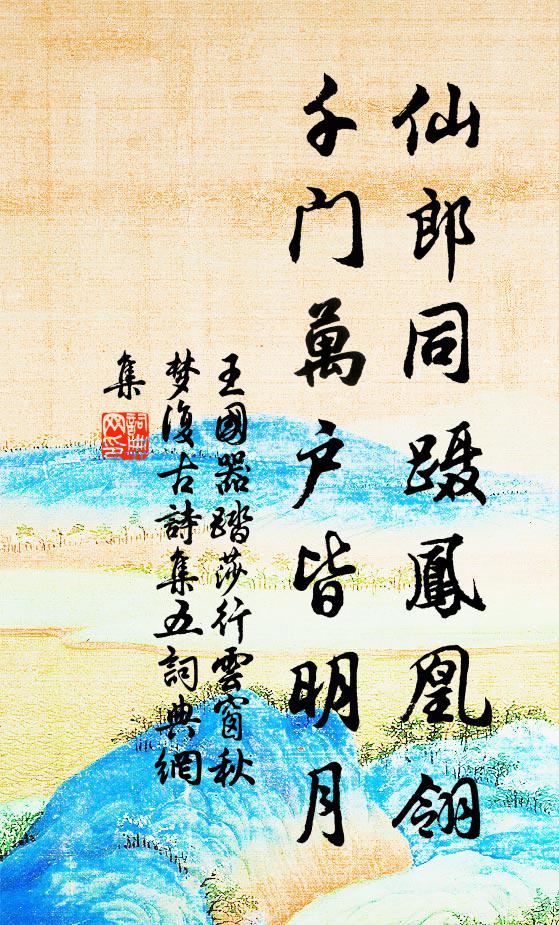 仙郎同蹑鳳凰翎
千门萬戶皆明月
王國器踏莎行雲窗秋
梦復古詩集五詞典網
集
詞典
网印